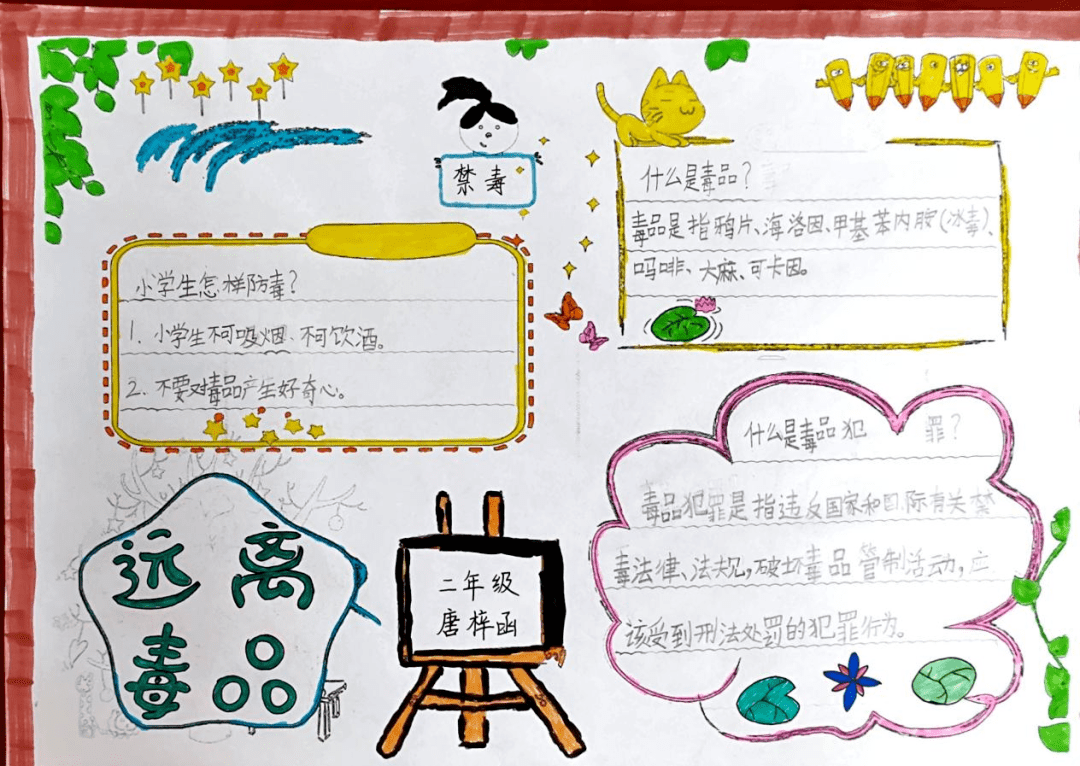 禁毒
什么是毒品？
毒品是指鸦片、海洛因、甲基苯丙胺(冰毒)、
吗啡、大麻、可卡因。
小学生怎样防毒？
1. 小学生不可吸烟、不可饮酒。
2. 不要对毒品产生好奇心。
什么是毒品犯罪？
毒品犯罪是指违反国家和国际有关禁
毒法律、法规，破坏毒品管制活动，应
该受到刑法处罚的犯罪行为。
远离
毒品
二年级
唐梓函